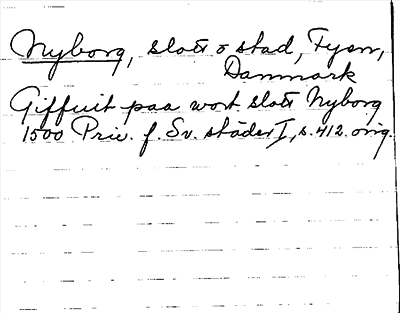 Nyborg, slott o stad, Fyen,
Danmark
Giffuit paa wort slott Nyborg
1500 Priv. f. Sv. städer I, s. 412. orig.